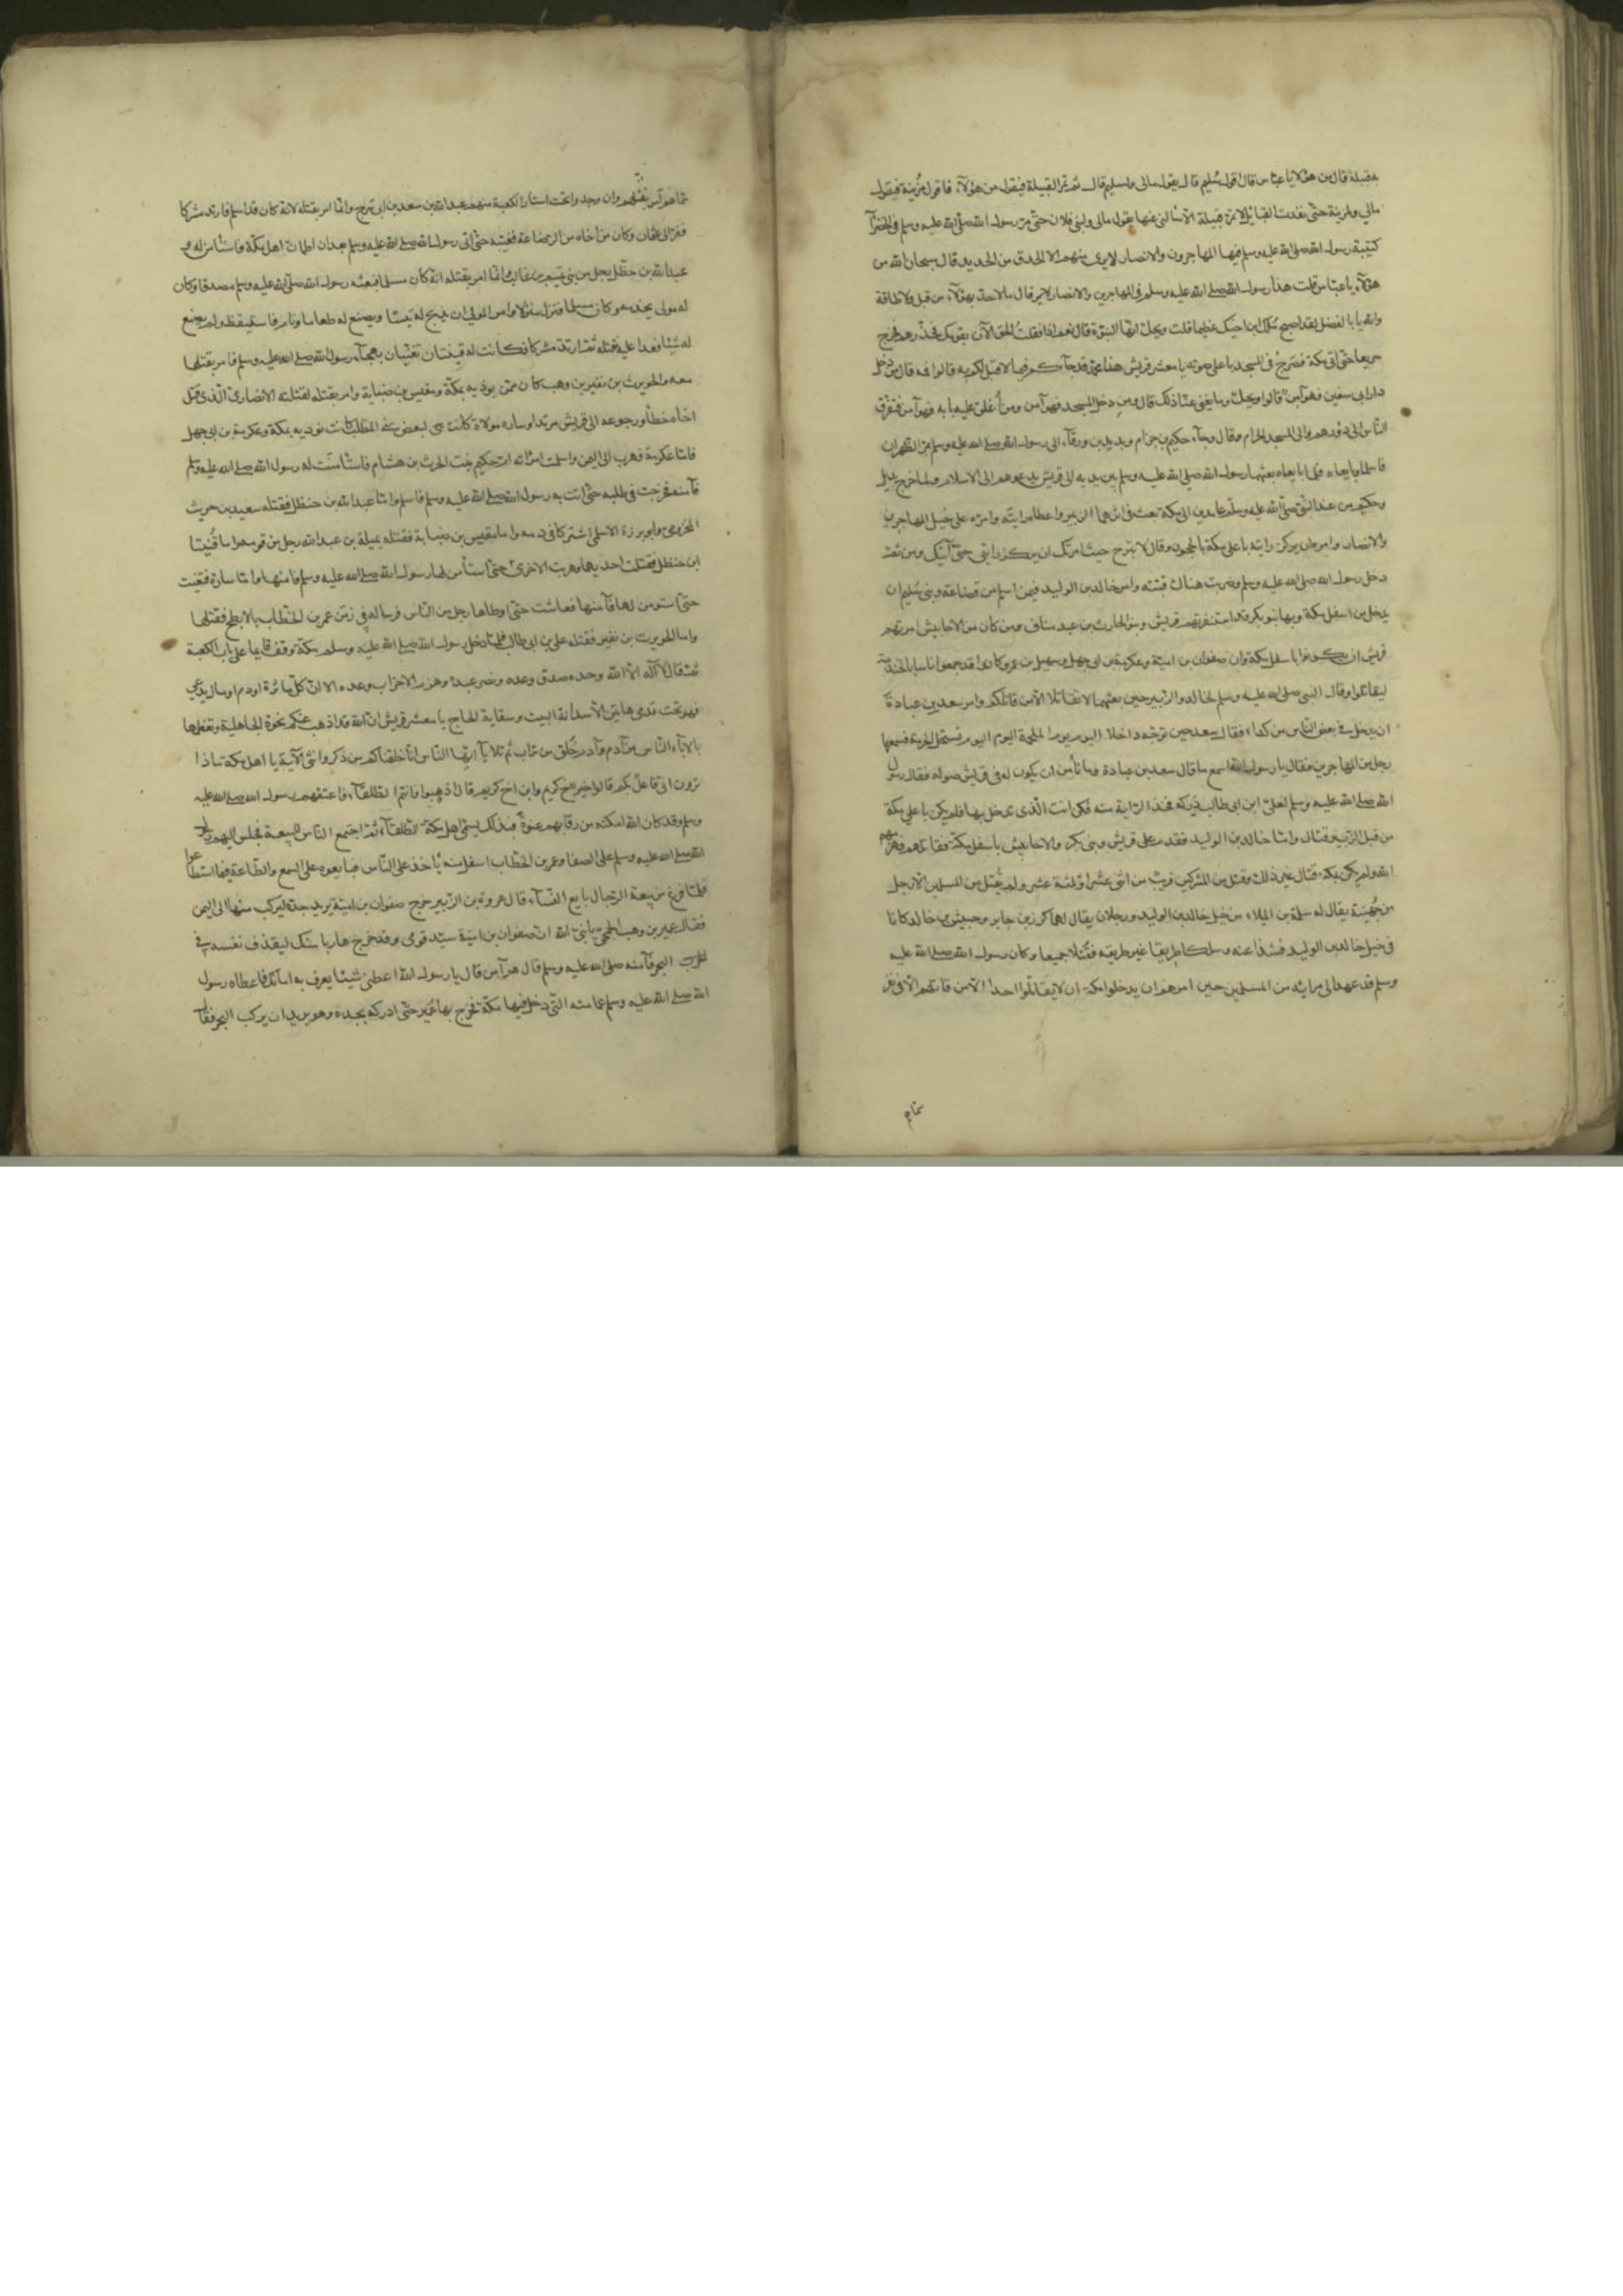 بقبيلة قال من هؤلاء يا عباس قال اقول سليم قال يقول مالي ولسليم قال ثم تمر القبيلة فيقول من هؤلاء فاقول مزينة فيقول
مالي ولمزينة حتى نفدت القبائل لا تمر قبيلة الا سألني عنها يقول مالي ولبني فلان حتى مر رسول الله صلى الله عليه وسلم في الخضراء
كتيبة رسول الله صلى الله عليه وسلم فيها المهاجرون والانصار لا يرى منهم الا الحدق من الحديد قال سبحان الله من
هؤلاء يا عباس قلت هذا رسول الله صلى الله عليه وسلم في المهاجرين والانصار قال ما لاحد بهؤلاء من قبل ولا طاقة
والله يا با الفضل لقد اصبح ملك ابن اخيك عظيما قلت ويحك انها النبوة قال نعم اذا فقلت الحق الآن بقومك فحذرهم فخرج
سريعا حتى اتى مكة فصرخ في المسجد باعلى صوته يا معشر قريش هذا محمد قد جاءكم فيما لا قبل لكم به قالوا فمه قال من دخل
دار ابي سفين فهو آمن قالوا ويحك وما يغني عنا ذلك قال ومن دخل المسجد فهو آمن ومن أغلق عليه بابه فهو آمن فتفرق
الناس الى دورهم والى المسجد الحرام وقال وجاء حكيم بن حزام وبديل بن ورقاء الى رسول الله صلى الله عليه وسلم بمر الظهران
فاسلما وبايعاه فلما بايعاه بعثهما رسول الله صلى الله عليه وسلم بين يديه الى قريش يدعوهم الى الاسلام ولما خرج بديل
وحكيم من عند النبي صلى الله عليه وسلم عامدين الى مكة بعث في اثرهما الزبير واعطاه رايته وامره على خيل المهاجرين
والانصار وامره ان يركز رايته باعلى مكة بالحجون وقال لا تبرح حيث امرتك ان تركز رايتي حتى آتيك ومن ثم
دخل رسول الله صلى الله عليه وسلم وضربت هناك قبته وامر خالد بن الوليد فيمن اسلم من قضاعة وبني سليم ان
يدخل من اسفل مكة وبها بنو بكر وقد استنفرتهم قريش وبنو الحارث بن عبد مناف ومن كان من الاحابيش امرتهم
قريش ان يكونوا باسفل مكة وان صفوان بن امية وعكرمة بن ابي جهل وسهيل بن عمرو كانوا قد جمعوا اناسا بالخندمة
ليقاتلوا وقال النبي صلى الله عليه وسلم لخالد والزبير حين بعثهما لا تقاتلا الا من قاتلكم وامر سعد بن عبادة
ان يدخل في بعض الناس من كداء فقال سعد حين توجه داخلا اليوم يوم الملحمة اليوم تستحل الحرمة فسمعها
رجل من المهاجرين فقال يا رسول الله اسمع ما قال سعد بن عبادة وما نأمن ان يكون له في قريش صولة فقال رسول
الله صلى الله عليه وسلم لعلي ابن ابي طالب ادركه فخذ الراية منه فكن انت الذي تدخل بها فلم يكن باعلى مكة
من قبل الزبير وقتال واما خالد بن الوليد فقدم على قريش وبني بكر والاحابيش باسفل مكة فقاتلهم فهزمهم
الله ولم يكن بمكة قتال غير ذلك وقتل من المشركين قريب من اثني عشر او ثلثة عشر ولم يقتل من المسلمين الا رجل
من جهينة يقال له سلمة بن الميلاء من خيل خالد بن الوليد ورجلان يقال لهما كرز بن جابر وحبيش بن خالد كانا
في خيل خالد بن الوليد فشذا عنه وسلكا طريقا غير طريقه فقتلا جميعا وكان رسول الله صلى الله عليه
وسلم قد عهد الى امرائه من المسلمين حين امرهم ان يدخلوا مكة ان لا يقاتلوا احدا الا من قاتلهم الا في نفر
سماهم امر بقتلهم وان وجدوا تحت استار الكعبة منهم عبد الله بن سعد بن ابي سرح وانما امر بقتله لانه كان قد اسلم فارتد مشركا
ففر الى عثمان وكان من اخاه من الرضاعة فغيبه حتى اتى رسول الله صلى الله عليه وسلم بعد ان اطمان اهل مكة فاستأمن له و
عبد الله بن خطل رجل من بني تيم بن غالب وانما امر بقتله انه كان مسلما فبعثه رسول الله صلى الله عليه وسلم مصدقا وكان
له مولى يخدمه وكان مسلما فنزل منزلا وامر المولى ان يذبح له تيسا ويصنع له طعاما ونام فاستيقظ ولم يصنع
له شيئا فعدا عليه فقتله ثم ارتد مشركا فكانت له قينتان تغنيان بهجاء رسول الله صلى الله عليه وسلم فامر بقتلهما
معه والحويرث بن نفير بن وهب كان ممن يوذيه بمكة ومقيس بن ضبابة وامر بقتله لقتله الانصاري الذي قتل
اخاه خطأ ورجوعه الى قريش مرتدا وساره مولاة كانت لبعض بني المطلب كانت توذيه بمكة وعكرمة بن ابي جهل
فاما عكرمة فهرب الى اليمن واسلمت امراته ام حكيم بنت الحرث بن هشام فاستأمنت له رسول الله صلى الله عليه وسلم
فآمنه فخرجت في طلبه حتى اتت به رسول الله صلى الله عليه وسلم فاسلم واما عبد الله بن حنظل فقتله سعيد بن حريث
المخزومي وابو برزة الاسلمي اشتركا في دمه واما مقيس بن ضبابة فقتله نميلة بن عبد الله رجل من قومه واما قينتا
ابن حنظل فقتلت احديهما وهربت الاخرى حتى استأمن لها رسول الله صلى الله عليه وسلم فامنها واما سارة فتغيبت
حتى استومن لها فآمنها فعاشت حتى اوطاها رجل من الناس فرسا له في زمن عمر بن الخطاب بالابطح فقتلها
واما الحويرث بن نفير فقتله علي بن ابي طالب فلما دخل رسول الله صلى الله عليه وسلم مكة وقف قايما على باب الكعبة
ثم قال لا اله الا الله وحده صدق وعده ونصر عبده وهزم الاحزاب وحده الا ان كل مأثرة او دم او مال يدعى
فهو تحت قدمي هاتين الا سدانة البيت وسقاية الحاج يا معشر قريش ان الله قد اذهب عنكم نخوة الجاهلية وتعظمها
بالآباء الناس من آدم وآدم خلق من تراب ثم تلا يا ايها الناس انا خلقناكم من ذكر وانثى الآية يا اهل مكة ماذا
ترون اني فاعل بكم قالوا خيرا اخ كريم وابن اخ كريم قال اذهبوا فانتم الطلقاء فاعتقهم رسول الله صلى الله عليه
وسلم وقد كان الله امكنه من رقابهم عنوة فبذلك يسمى اهل مكة الطلقاء ثم اجتمع الناس للبيعة فجلس اليهم رسول
الله صلى الله عليه وسلم على الصفا وعمر بن الخطاب اسفل منه يأخذ على الناس فبايعوه على السمع والطاعة فيما استطاعوا
فلما فرغ من بيعة الرجال بايع النساء قال عروة بن الزبير خرج صفوان بن امية يريد جدة ليركب منها الى اليمن
فقال عمير بن وهب الجمحي يا نبي الله ان صفوان بن امية سيد قومي وقد خرج هاربا منك ليقذف نفسه في
البحر فآمنه صلى الله عليه وسلم قال هو آمن قال يا رسول الله اعطني شيئا يعرف به امانك فاعطاه رسول
الله صلى الله عليه وسلم عمامته التي دخل فيها مكة فخرج بها عمير حتى ادركه بجدة وهو يريد ان يركب البحر فقال